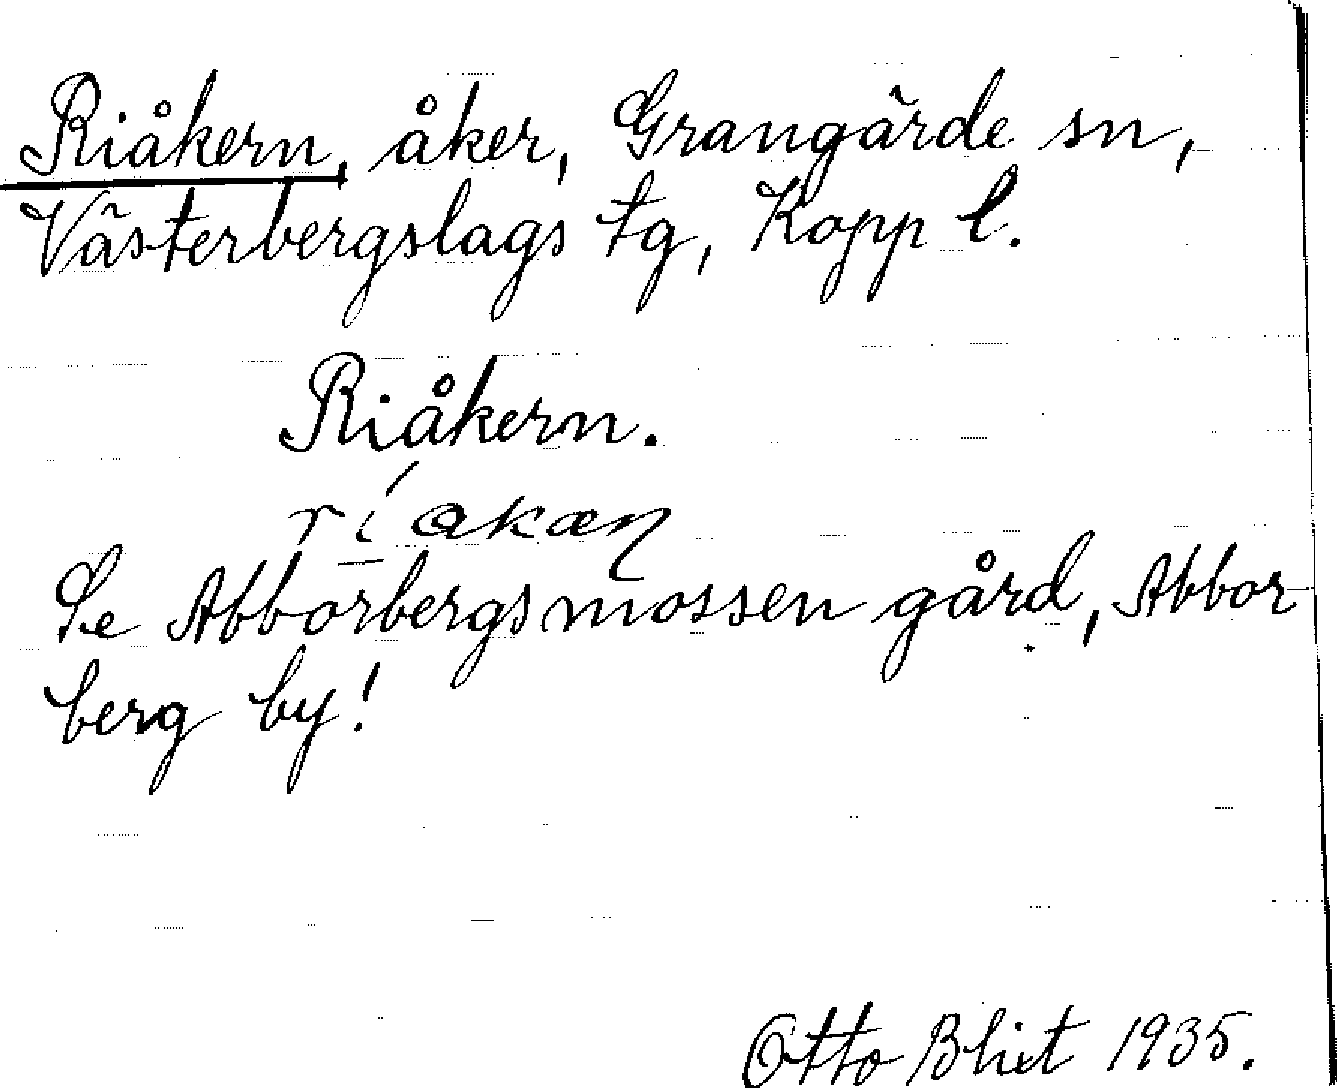 Riåkern, åker, Grangärde sn,
Västerbergslags tg, Kopp l.
Riåkern.
Se Abborbergsmossen gård, Abbor
berg by!
Otto Blixt 1935.